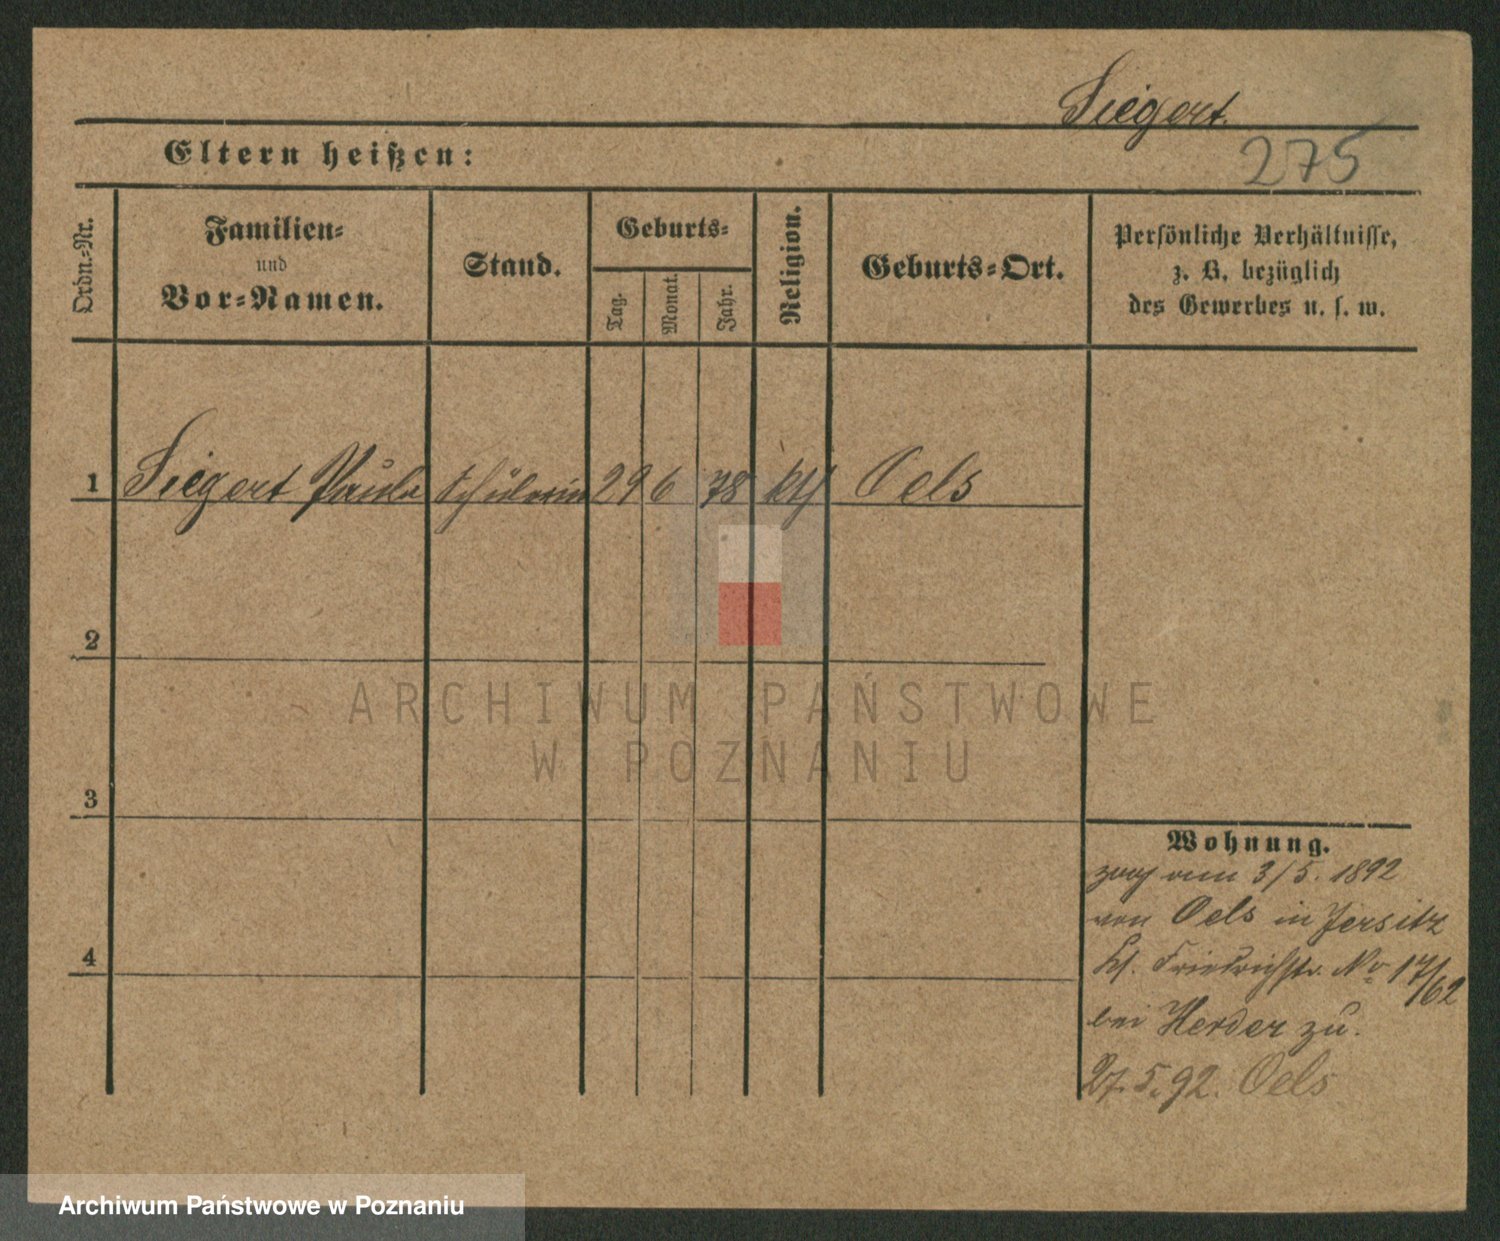 Siegert.
275
Eltern heißen:
Ordn.-Nr.
Familien-
und
Vor-Namen.
Stand.
Geburts-
Tag.
Monat.
Jahr.
Religion.
Geburts-Ort.
Persönliche Verhältnisse,
z. B. bezüglich
des Gewerbes u. s. w.
1 Siegert Paula Schülerin 29 6 78 kth Oels
2
3
4
ARCHIWUM PAŃSTWOWE
W POZNANIU
Wohnung.
zog am 3/5. 1892
von Oels in Jersitz
Friedrichstr. No 17/62
bei Herder zu.
27.5.92. Oels
Archiwum Państwowe w Poznaniu